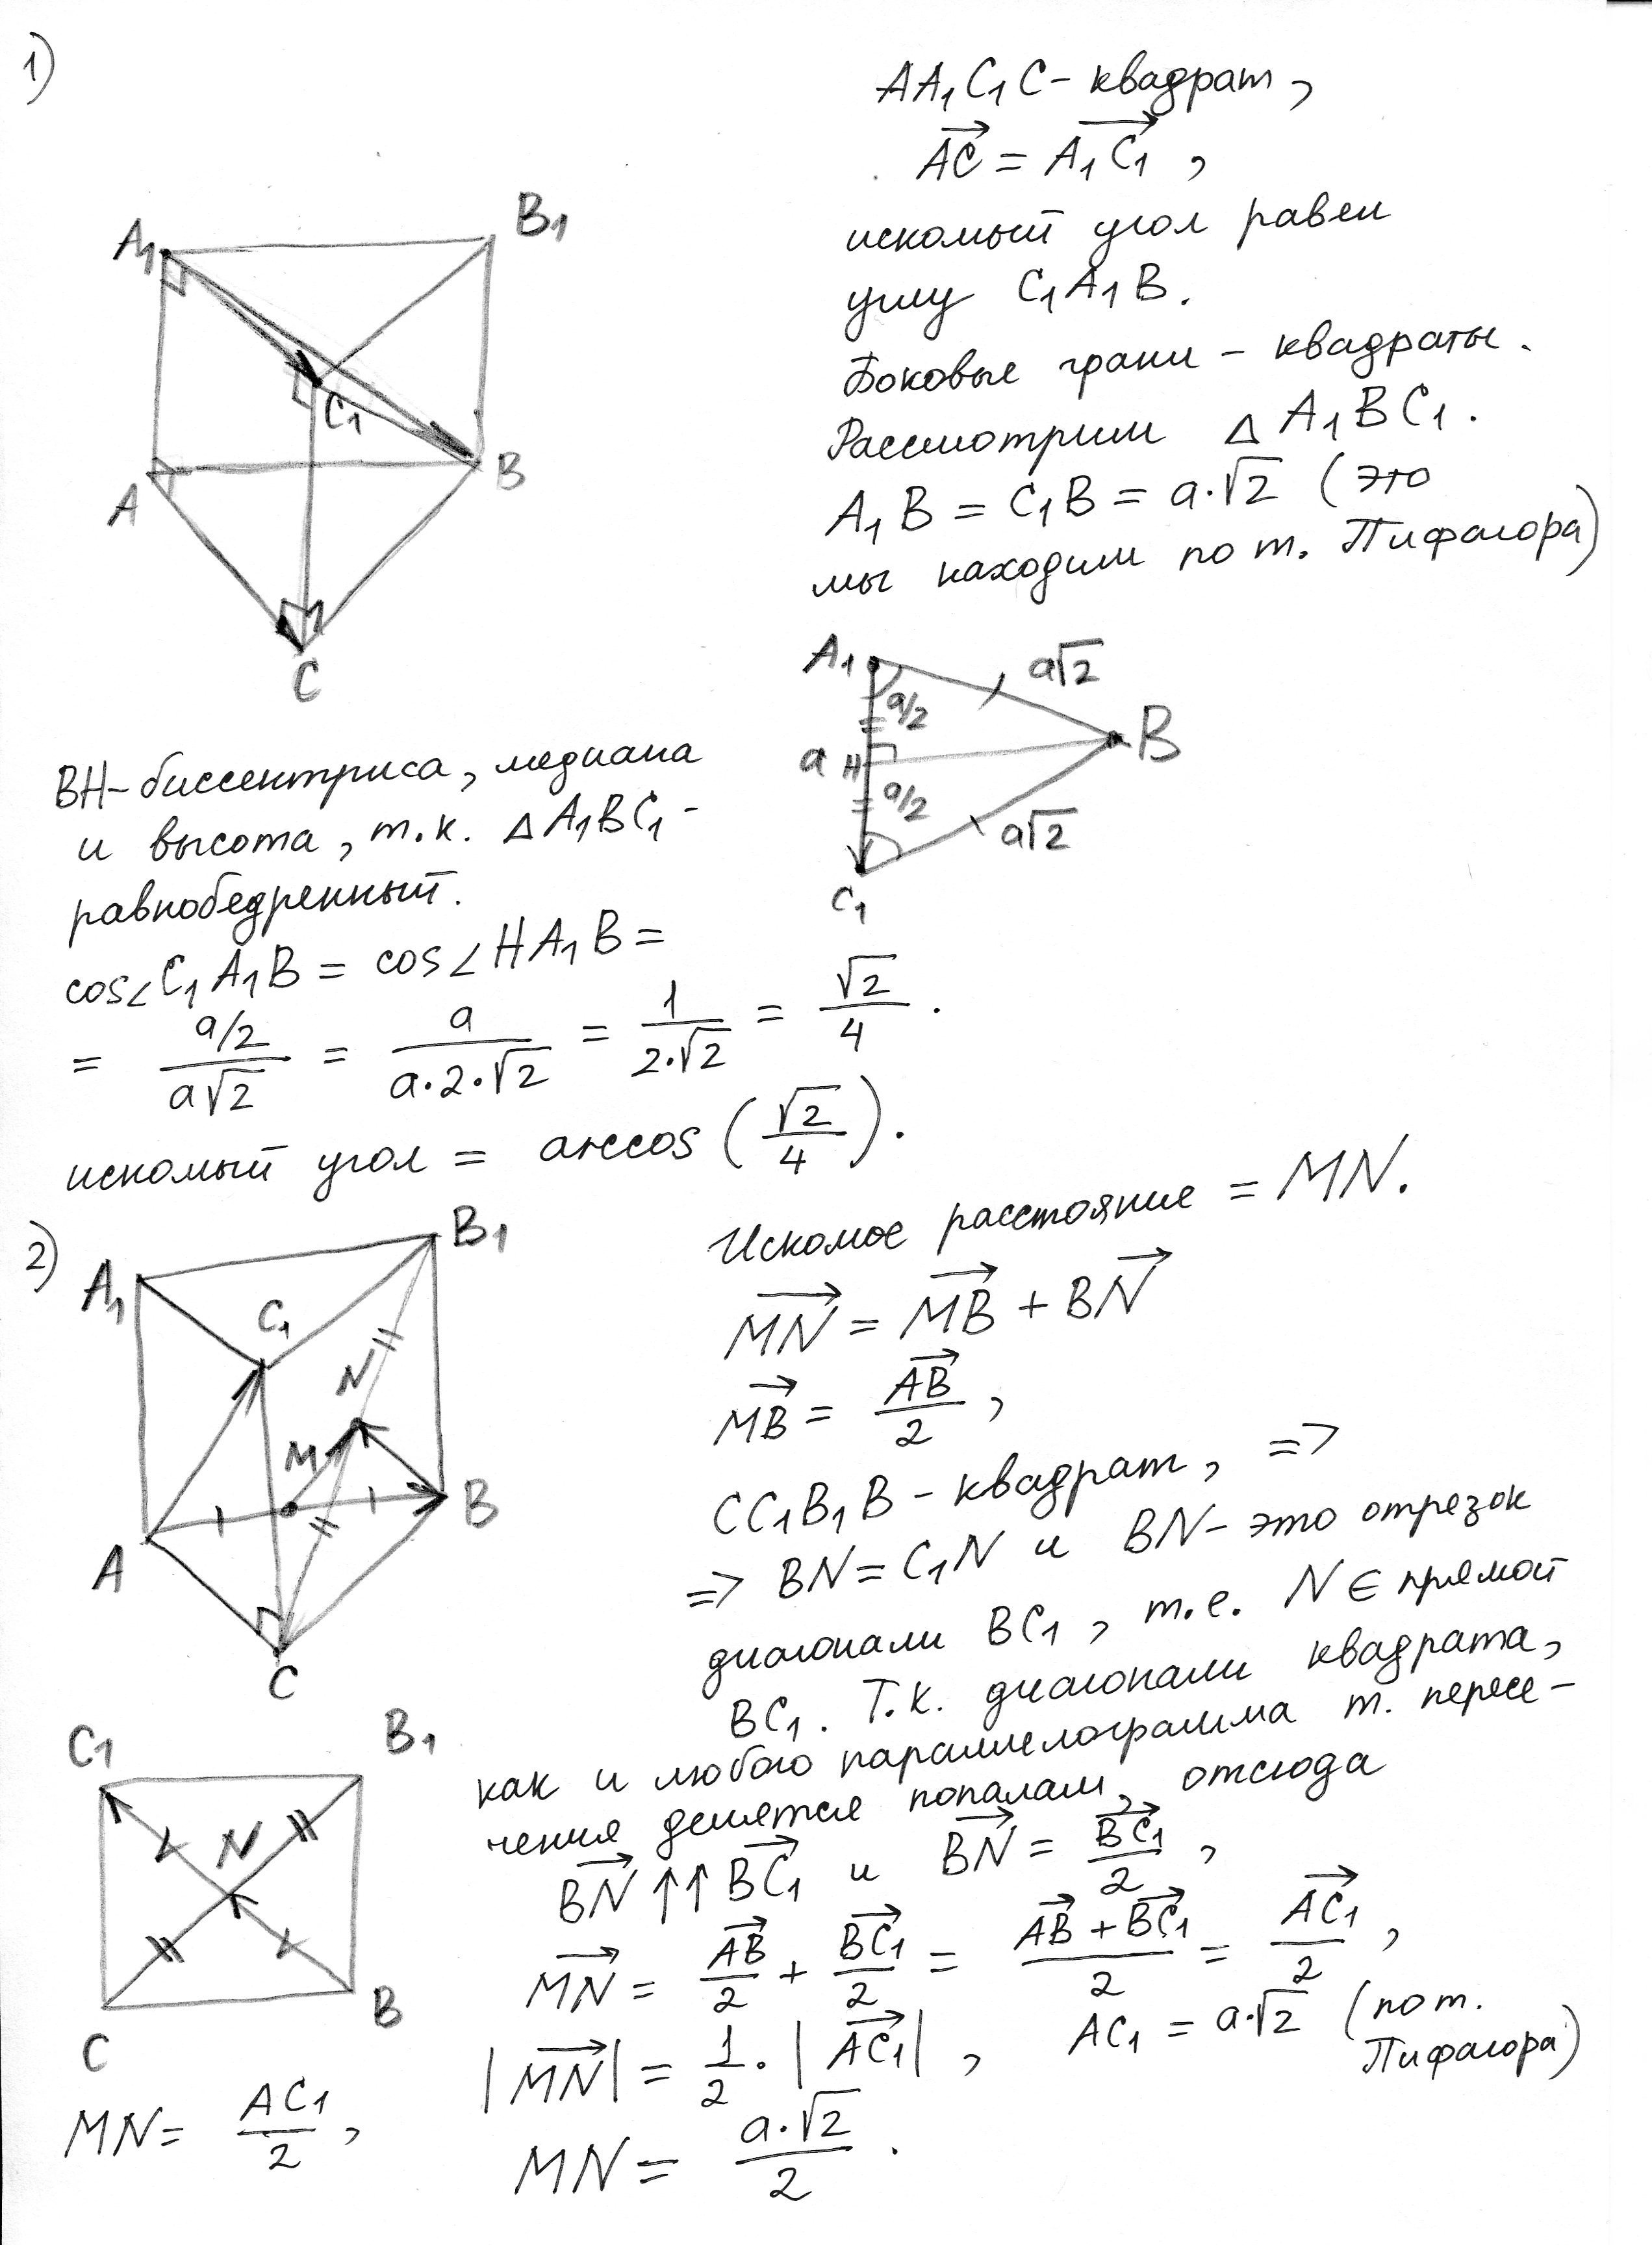 1)
AA₁C₁C – квадрат,
AC = A₁C₁,
искомый угол равен
углу C₁A₁B.
Боковые грани – квадраты.
Рассмотрим △A₁BC₁.
A₁B = C₁B = a·√2 (это
мы находим по т. Пифагора)
A₁
B₁
C₁
A
B
C
A₁
a√2
a/2
a
H
B
a/2
a√2
C₁
BH – биссектриса, медиана
и высота, т.к. △A₁BC₁ –
равнобедренный.
cos∠C₁A₁B = cos∠HA₁B =
= (a/2)/(a√2) = a/(a·2·√2) = 1/(2·√2) = √2/4.
искомый угол = arccos(√2/4).
2)
A₁
B₁
C₁
N
M
A
B
C
Искомое расстояние = MN.
MN = MB + BN
MB = AB/2,
CC₁B₁B – квадрат, =>
=> BN = C₁N и BN – это отрезок
диагонали BC₁, т.е. N ∈ прямой
BC₁. Т.к. диагонали квадрата,
как и любого параллелограмма т. пересе-
чения делятся пополам, отсюда
BN ↑↑ BC₁ и BN = BC₁/2,
MN = AB/2 + BC₁/2 = (AB + BC₁)/2 = AC₁/2,
|MN| = 1/2·|AC₁|, AC₁ = a·√2 (по т.
Пифагора)
C₁
B₁
N
C
B
MN = AC₁/2,
MN = a·√2/2.